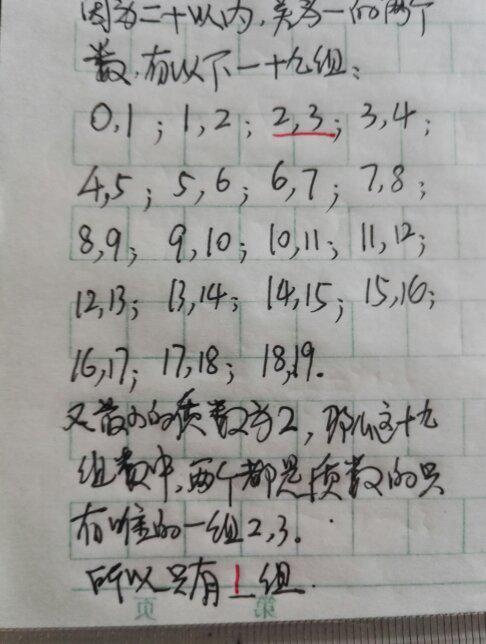 因为二十以内,差为一的两个
数,有以下一十九组:
0,1; 1,2; 2,3; 3,4;
4,5; 5,6; 6,7; 7,8;
8,9; 9,10; 10,11; 11,12;
12,13; 13,14; 14,15; 15,16;
16,17; 17,18; 18,19.
又最小的质数为2,那么这十九
组数中,两个都是质数的只
有唯的一组2,3.
所以只有1组.
第 页